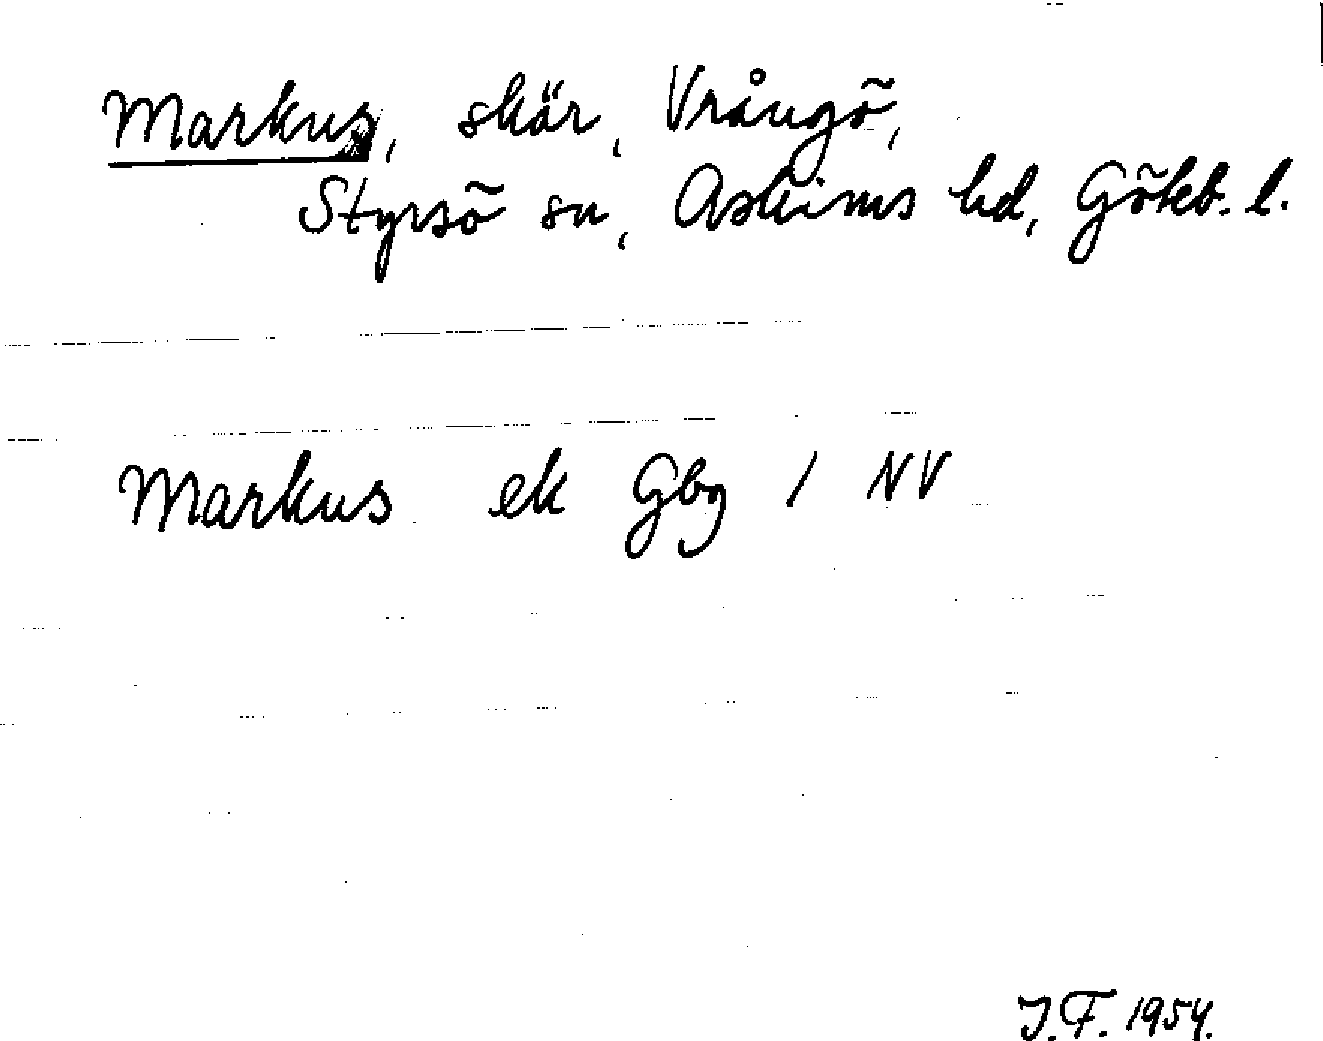 Markus, skär, Vrångö,
Styrsö sn, Askims hd, Göteb. l.
Markus ek Gbg 1 NV
J.F. 1954.